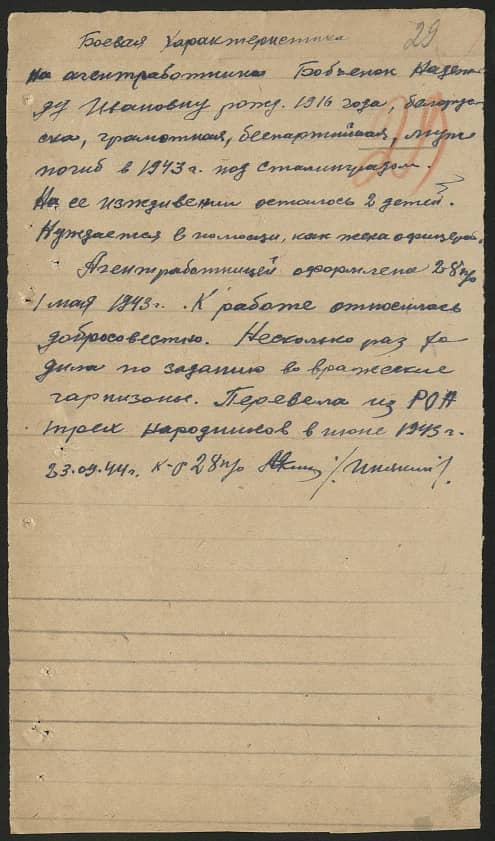 Боевая характеристика 29
на агентработника Бобъенок Надеж
ду Ивановну рожд. 1916 года, белорус
ска, грамотная, беспартийная, муж
погиб в 1943 г. под Сталинградом. 29
На ее иждивении осталось 2 детей.
Нуждается в помощи, как жена офицера.
Агентработницей оформлена 28 п/о
1 мая 1943 г. К работе относилась
добросовестно. Несколько раз хо
дила по заданию во вражеские
гарнизоны. Перевела из РОА
троих народников в июне 1943 г.
23.09.44 г. к-р 28 п/о